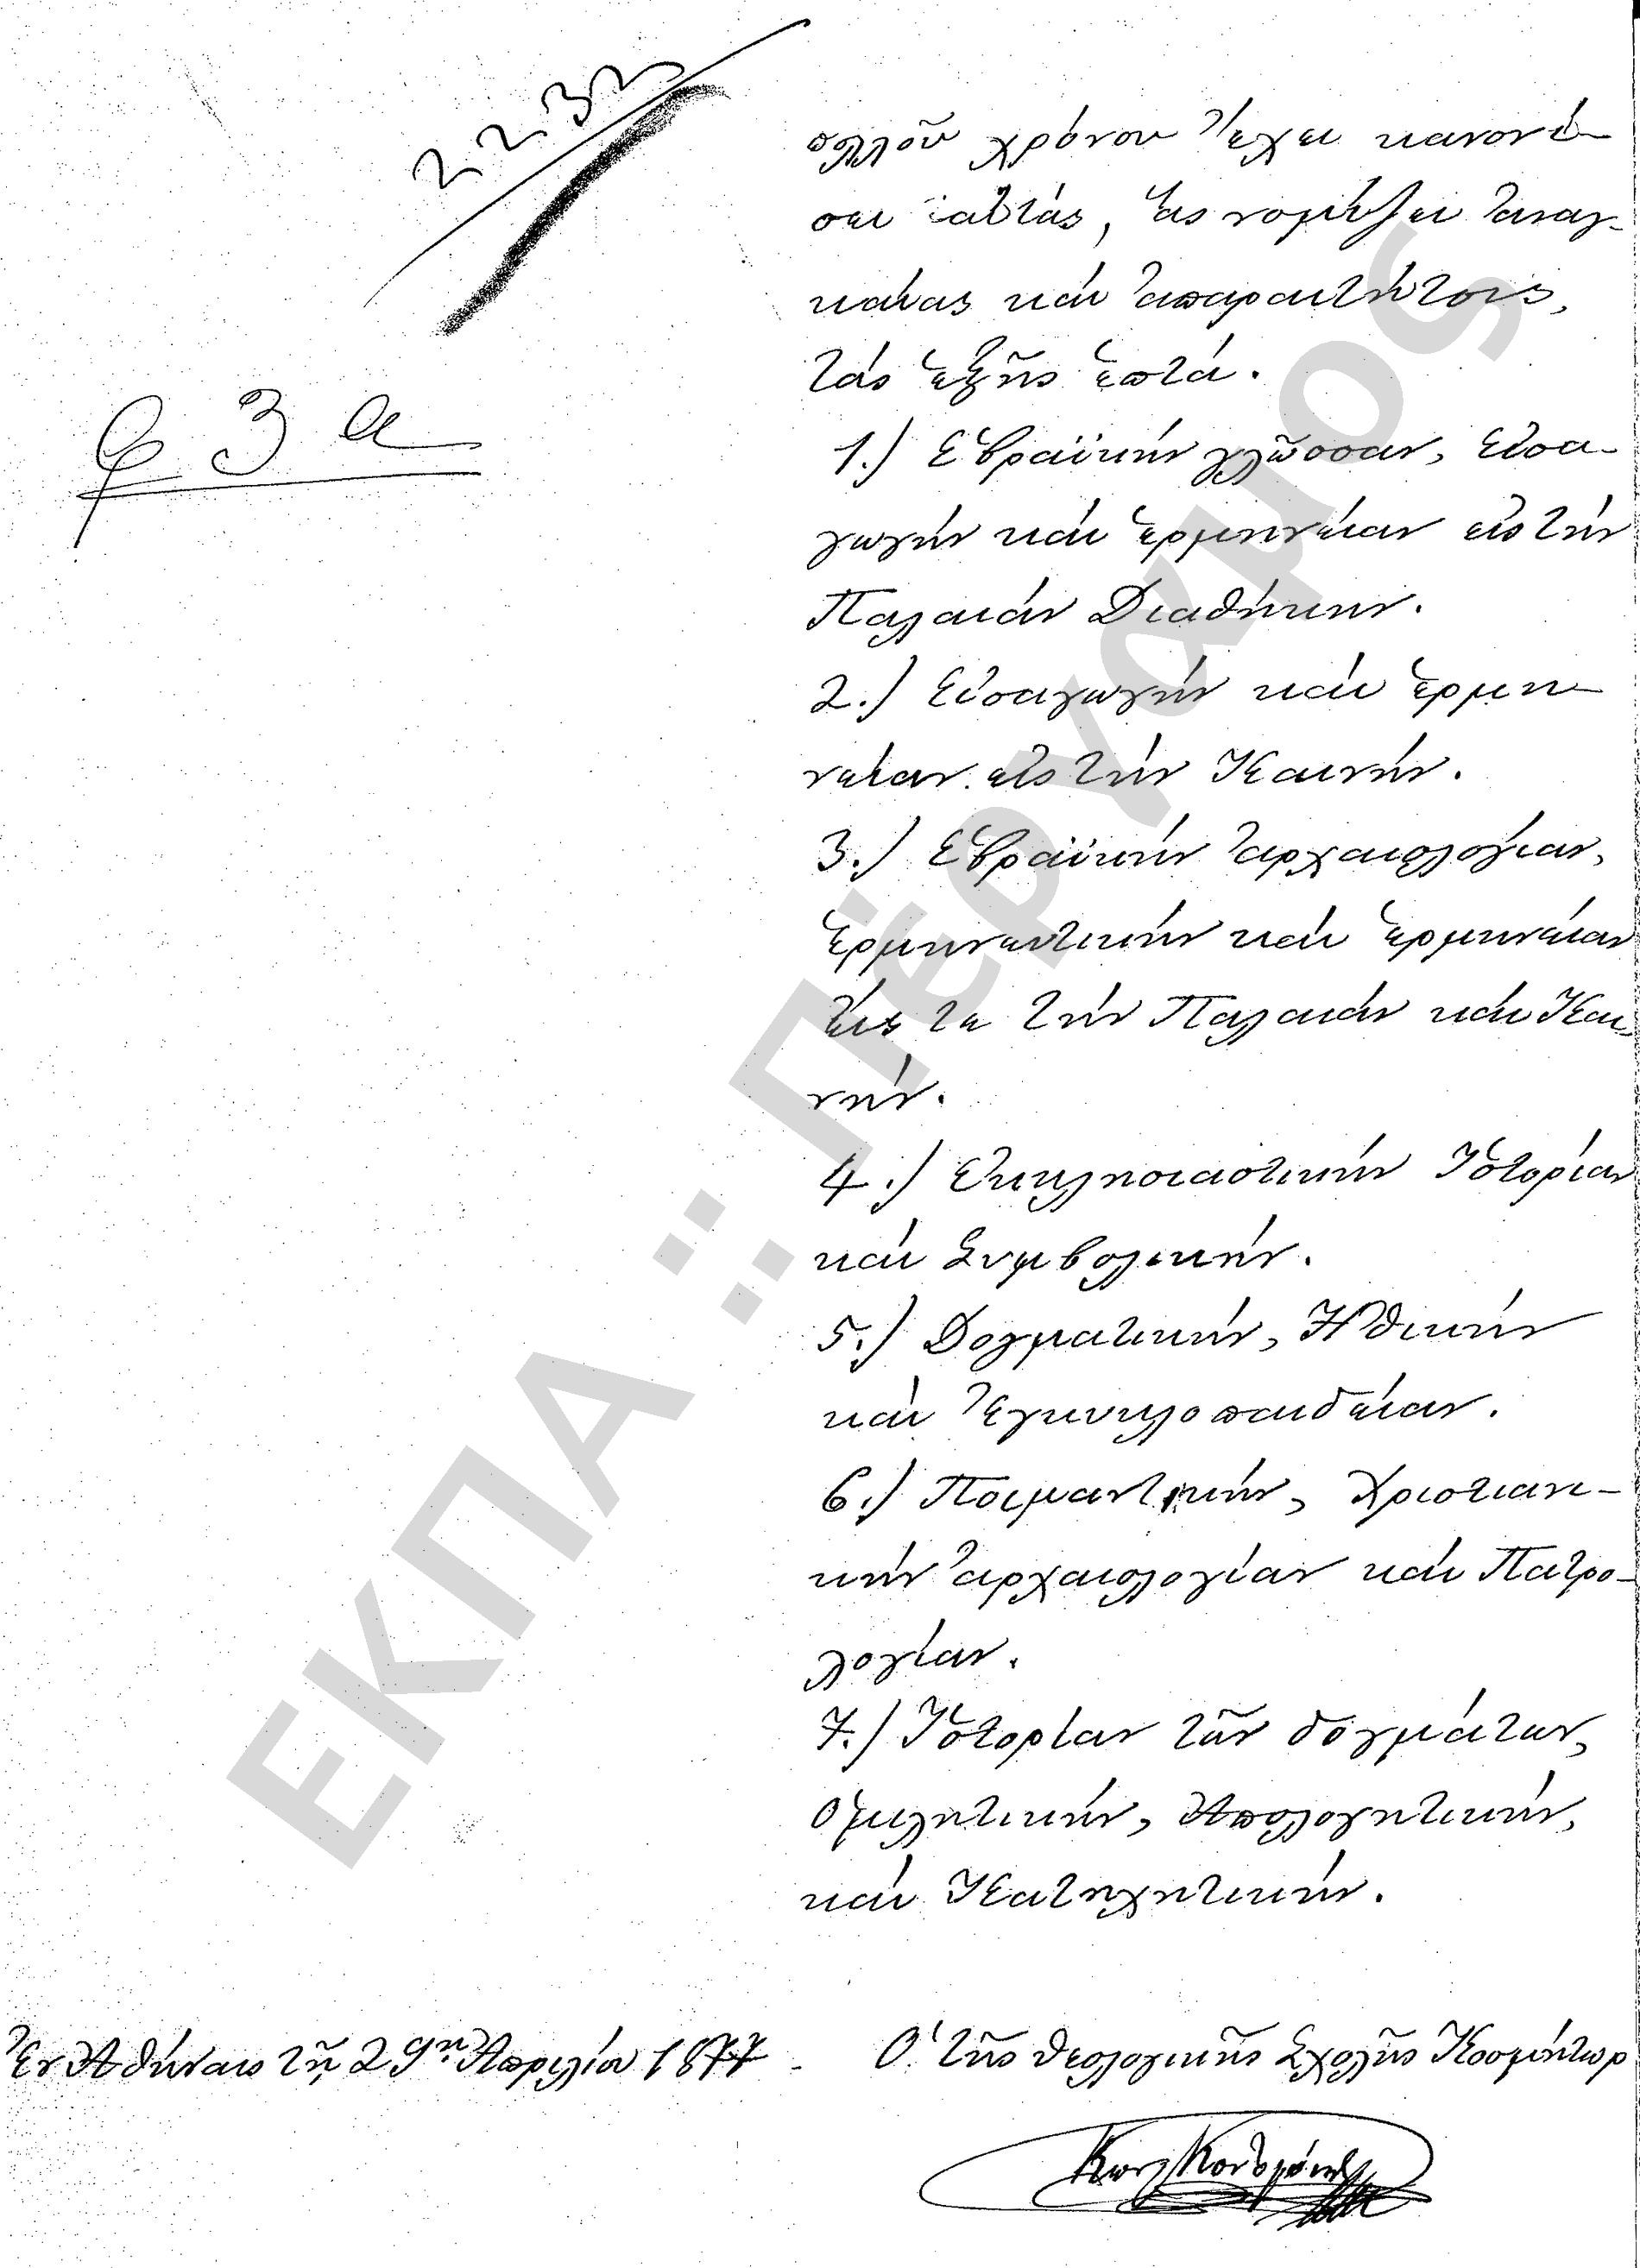 2232
φ 3 α
πολλοῦ χρόνου ἔχει κανονί-
σει αὐτάς, ἃς νομίζει ἀναγ-
καίας καὶ ἀπαραιτήτους,
τὰς ἑξῆς ἑπτά.
1.) Ἑβραϊκὴν γλῶσσαν, εἰσα-
γωγὴν καὶ ἑρμηνείαν εἰς τὴν
Παλαιὰν Διαθήκην.
2.) Εἰσαγωγὴν καὶ ἑρμη-
νείαν εἰς τὴν Καινήν.
3.) Ἑβραϊκὴν ἀρχαιολογίαν,
ἑρμηνευτικὴν καὶ ἑρμηνείαν
εἰς τε τὴν Παλαιὰν καὶ Και-
νήν.
4.) Ἐκκλησιαστικὴν Ἱστορίαν
καὶ Συμβολικήν.
5.) Δογματικήν, Ἠθικὴν
καὶ Ἐγκυκλοπαιδείαν.
6.) Ποιμαντικήν, Χριστιανι-
κὴν ἀρχαιολογίαν καὶ Πατρο-
λογίαν.
7.) Ἱστορίαν τῶν δογμάτων,
Ὁμιλητικήν, Ἀπολογητικήν,
καὶ Κατηχητικήν.
Ἐν Ἀθήναις τῇ 29ῃ Ἀπριλίου 1877
Ὁ τῆς Θεολογικῆς Σχολῆς Κοσμήτωρ
ΕΚΠΑ :: Πέργαμος